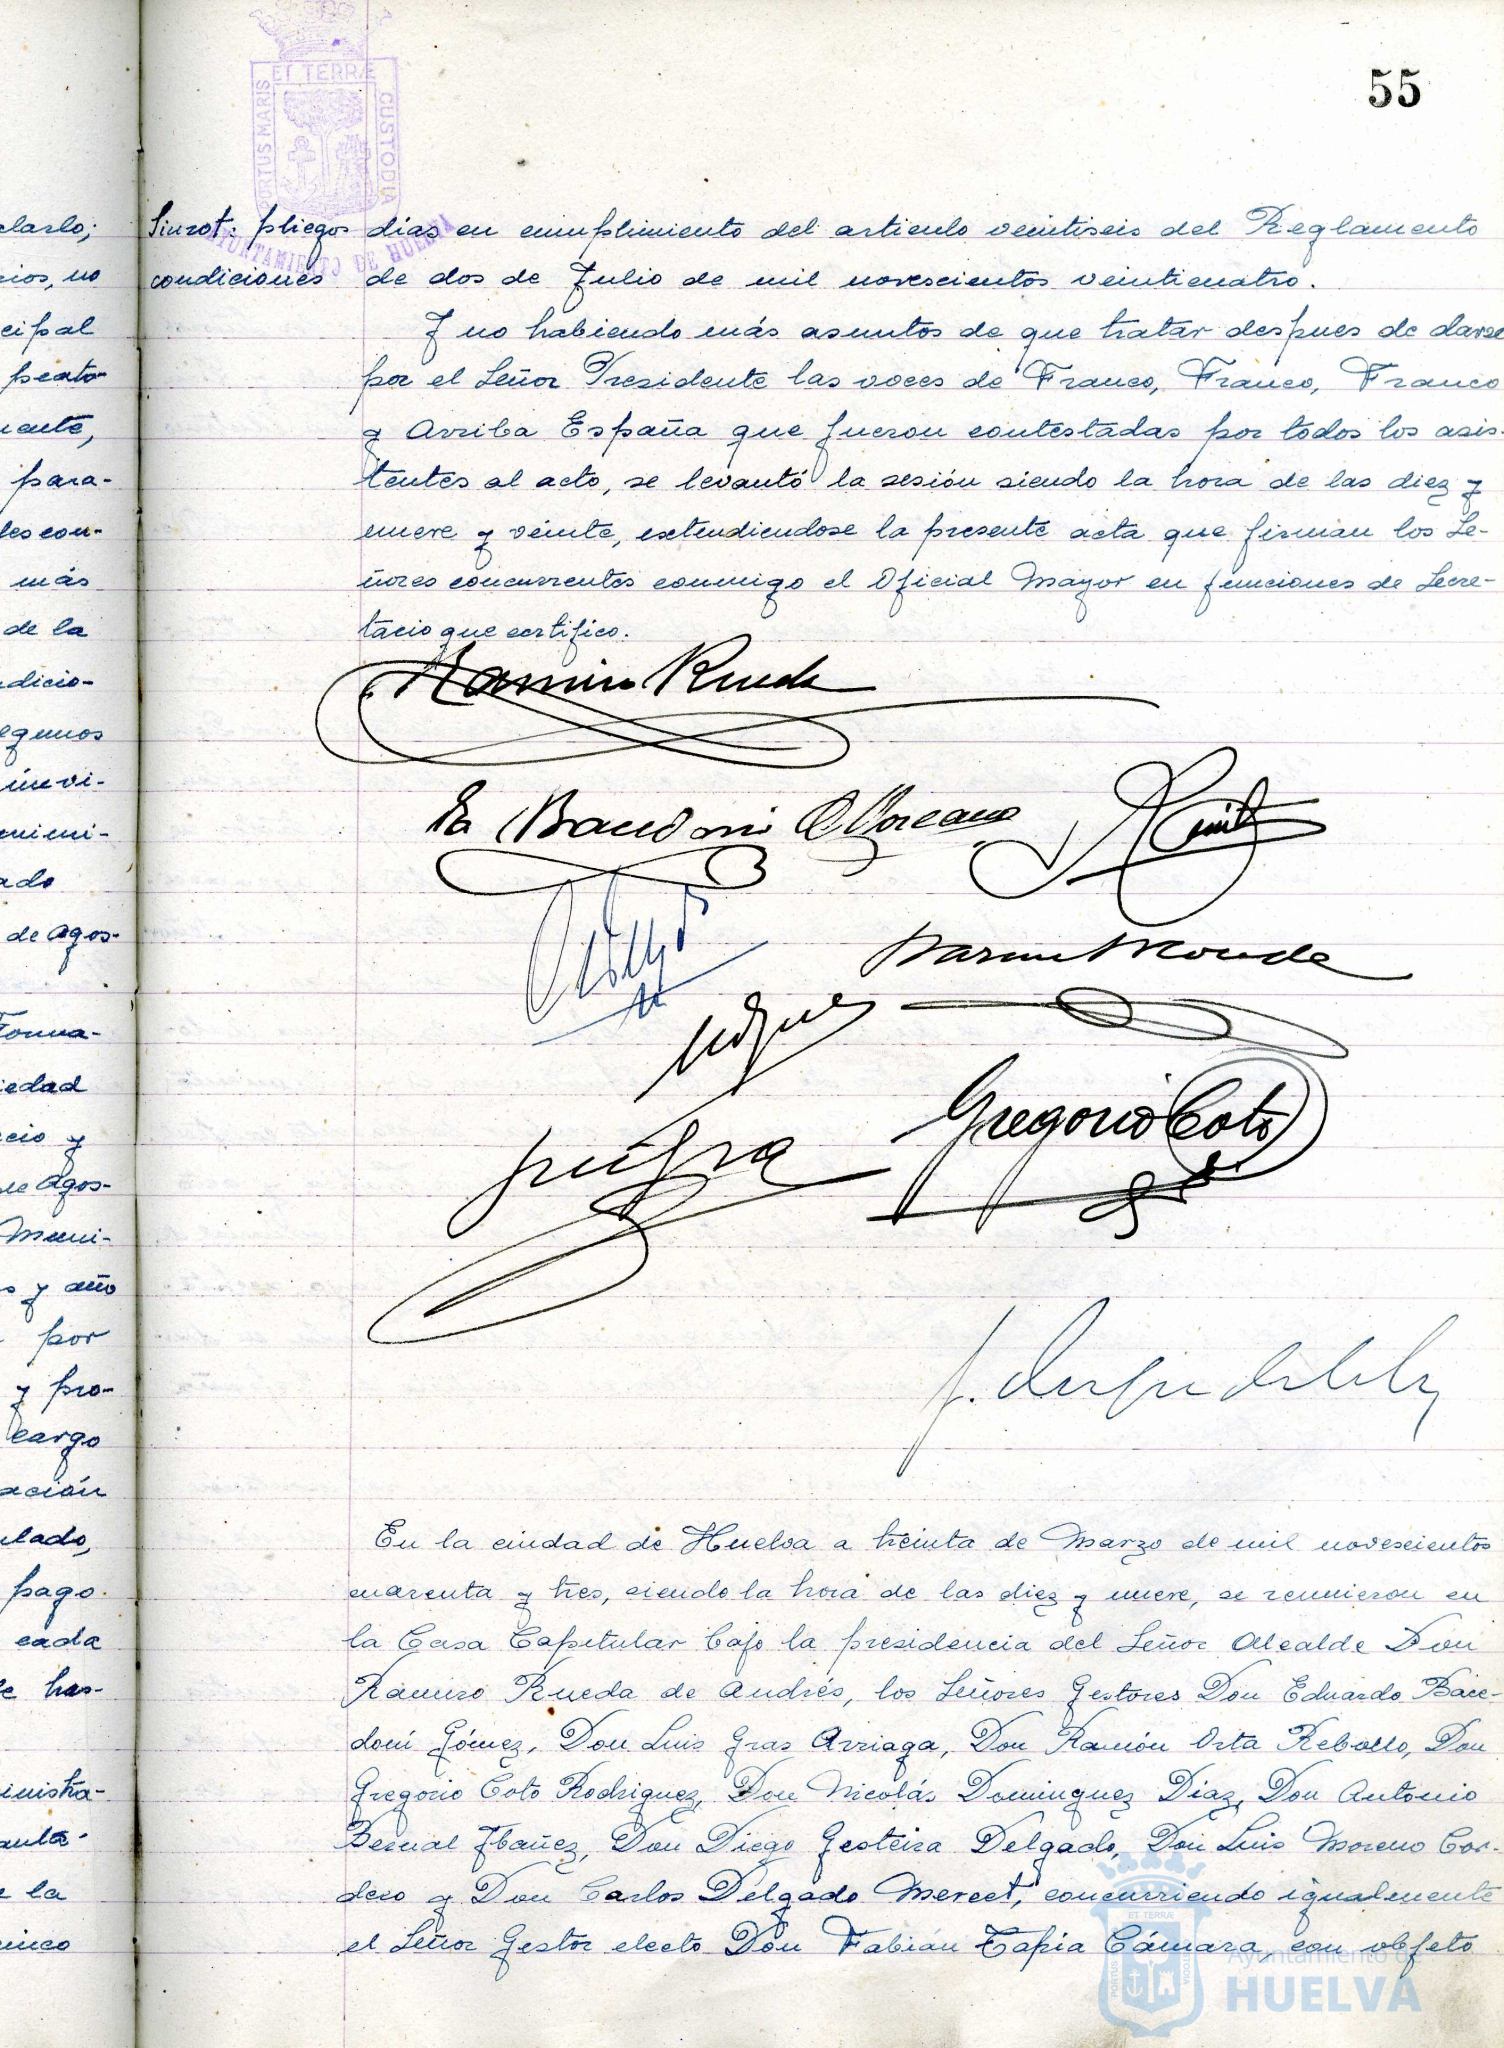 55
ET TERRÆ
PORTUS MARIS
CUSTODIA
AYUNTAMIENTO DE HUELVA
Sinrot: pliegos
condiciones
días en cumplimiento del artículo veintiseis del Reglamento
de dos de Julio de mil novescientos veinticuatro.
Y no habiendo más asuntos de que tratar despues de darse
por el Señor Presidente las voces de Franco, Franco, Franco
y Arriba España que fueron contestadas por todos los asis-
tentes al acto, se levantó la sesión siendo la hora de las diez y
nueve y veinte, extendiendose la presente acta que firman los Se-
ñores concurrentes conmigo el Oficial Mayor en funciones de Secre-
tario que certifico.
Ramiro Rueda
Gregorio Coto
En la ciudad de Huelva a treinta de Marzo de mil novescientos
cuarenta y tres, siendo la hora de las diez y nueve, se reunieron en
la Casa Capitular bajo la presidencia del Señor Alcalde Don
Ramiro Rueda de Andrés, los Señores Gestores Don Eduardo Bace-
doni Gómez, Don Luis Gras Arriaga, Don Ramón Orta Rebollo, Don
Gregorio Coto Rodriguez, Don Nicolás Dominguez Díaz, Don Antonio
Bernal Ibañez, Don Diego Gesteira Delgado, Don Luis Moreno Cor-
dero y Don Carlos Delgado Mercet, concurriendo igualmente
el Señor Gestor electo Don Fabián Tapia Cámara, con objeto
clarlo;
cios, no
cipal
peato-
uente,
para-
des con-
más
de la
ndicio-
egimos
inevi-
enimi-
ado
de Agos-
Forma-
iedad
cio y
de Agos-
Muni-
s y año
por
y pro-
cargo
ación
ulado,
pago
cada
e has-
inistra-
anta-
e la
cinco
ET TERRÆ
PORTUS MARIS
CUSTODIA
Ayuntamiento de
HUELVA